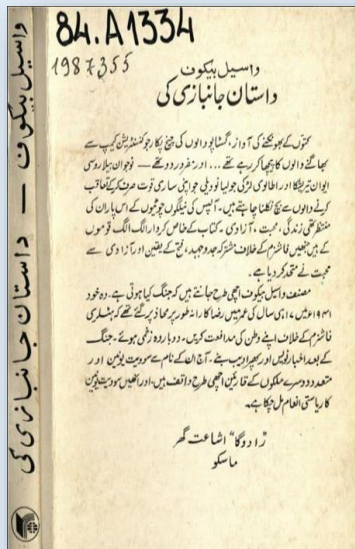 84.A1334
1987355
واسیل بیکوف
داستان جانبازی کی
کتوں کے بھونکنے کی آواز، گسٹاپو والوں کی چیخ پکار جو کنسنٹریشن کیمپ سے
بھاگنے والوں کا پیچھا کر رہے تھے... اور مفرور دو تھے — نوجوان بیلاروسی
ایوان تریشکا اور اطالوی لڑکی جولیا نوویلی جو اپنی ساری قوت صرف کر کے تعاقب
کرنے والوں سے بچ نکلنا چاہتے ہیں۔ آلپس کی نیلگوں چوٹیوں کے اس پار ان کی
منتظر تھی زندگی، محبت، آزادی۔ کتاب کے خاص کردار الگ الگ قوموں
کے ہیں جنھیں فاشزم کے خلاف مشترکہ جدوجہد، فتح کے یقین اور آزادی سے
محبت نے متحد کر دیا ہے۔
مصنف واسیل بیکوف اچھی طرح جانتے ہیں کہ جنگ کیا ہوتی ہے۔ وہ خود
۱۹۴۱ء میں ۱۷ ہی سال کی عمر میں رضاکارانہ طور پر محاذ پر گئے تھے کہ ہٹلری
فاشزم کے خلاف اپنے وطن کی مدافعت کریں۔ دو بار وہ زخمی ہوئے۔ جنگ
کے بعد اخبار نویس اور پھر ادیب بنے۔ آج ان کے نام سے سوویت یونین اور
متعدد دوسرے ملکوں کے قارئین اچھی طرح واقف ہیں۔ اور انھیں سوویت یونین
کا ریاستی انعام مل چکا ہے۔
"رادوگا" اشاعت گھر
ماسکو
واسیل بیکوف — داستان جانبازی کی